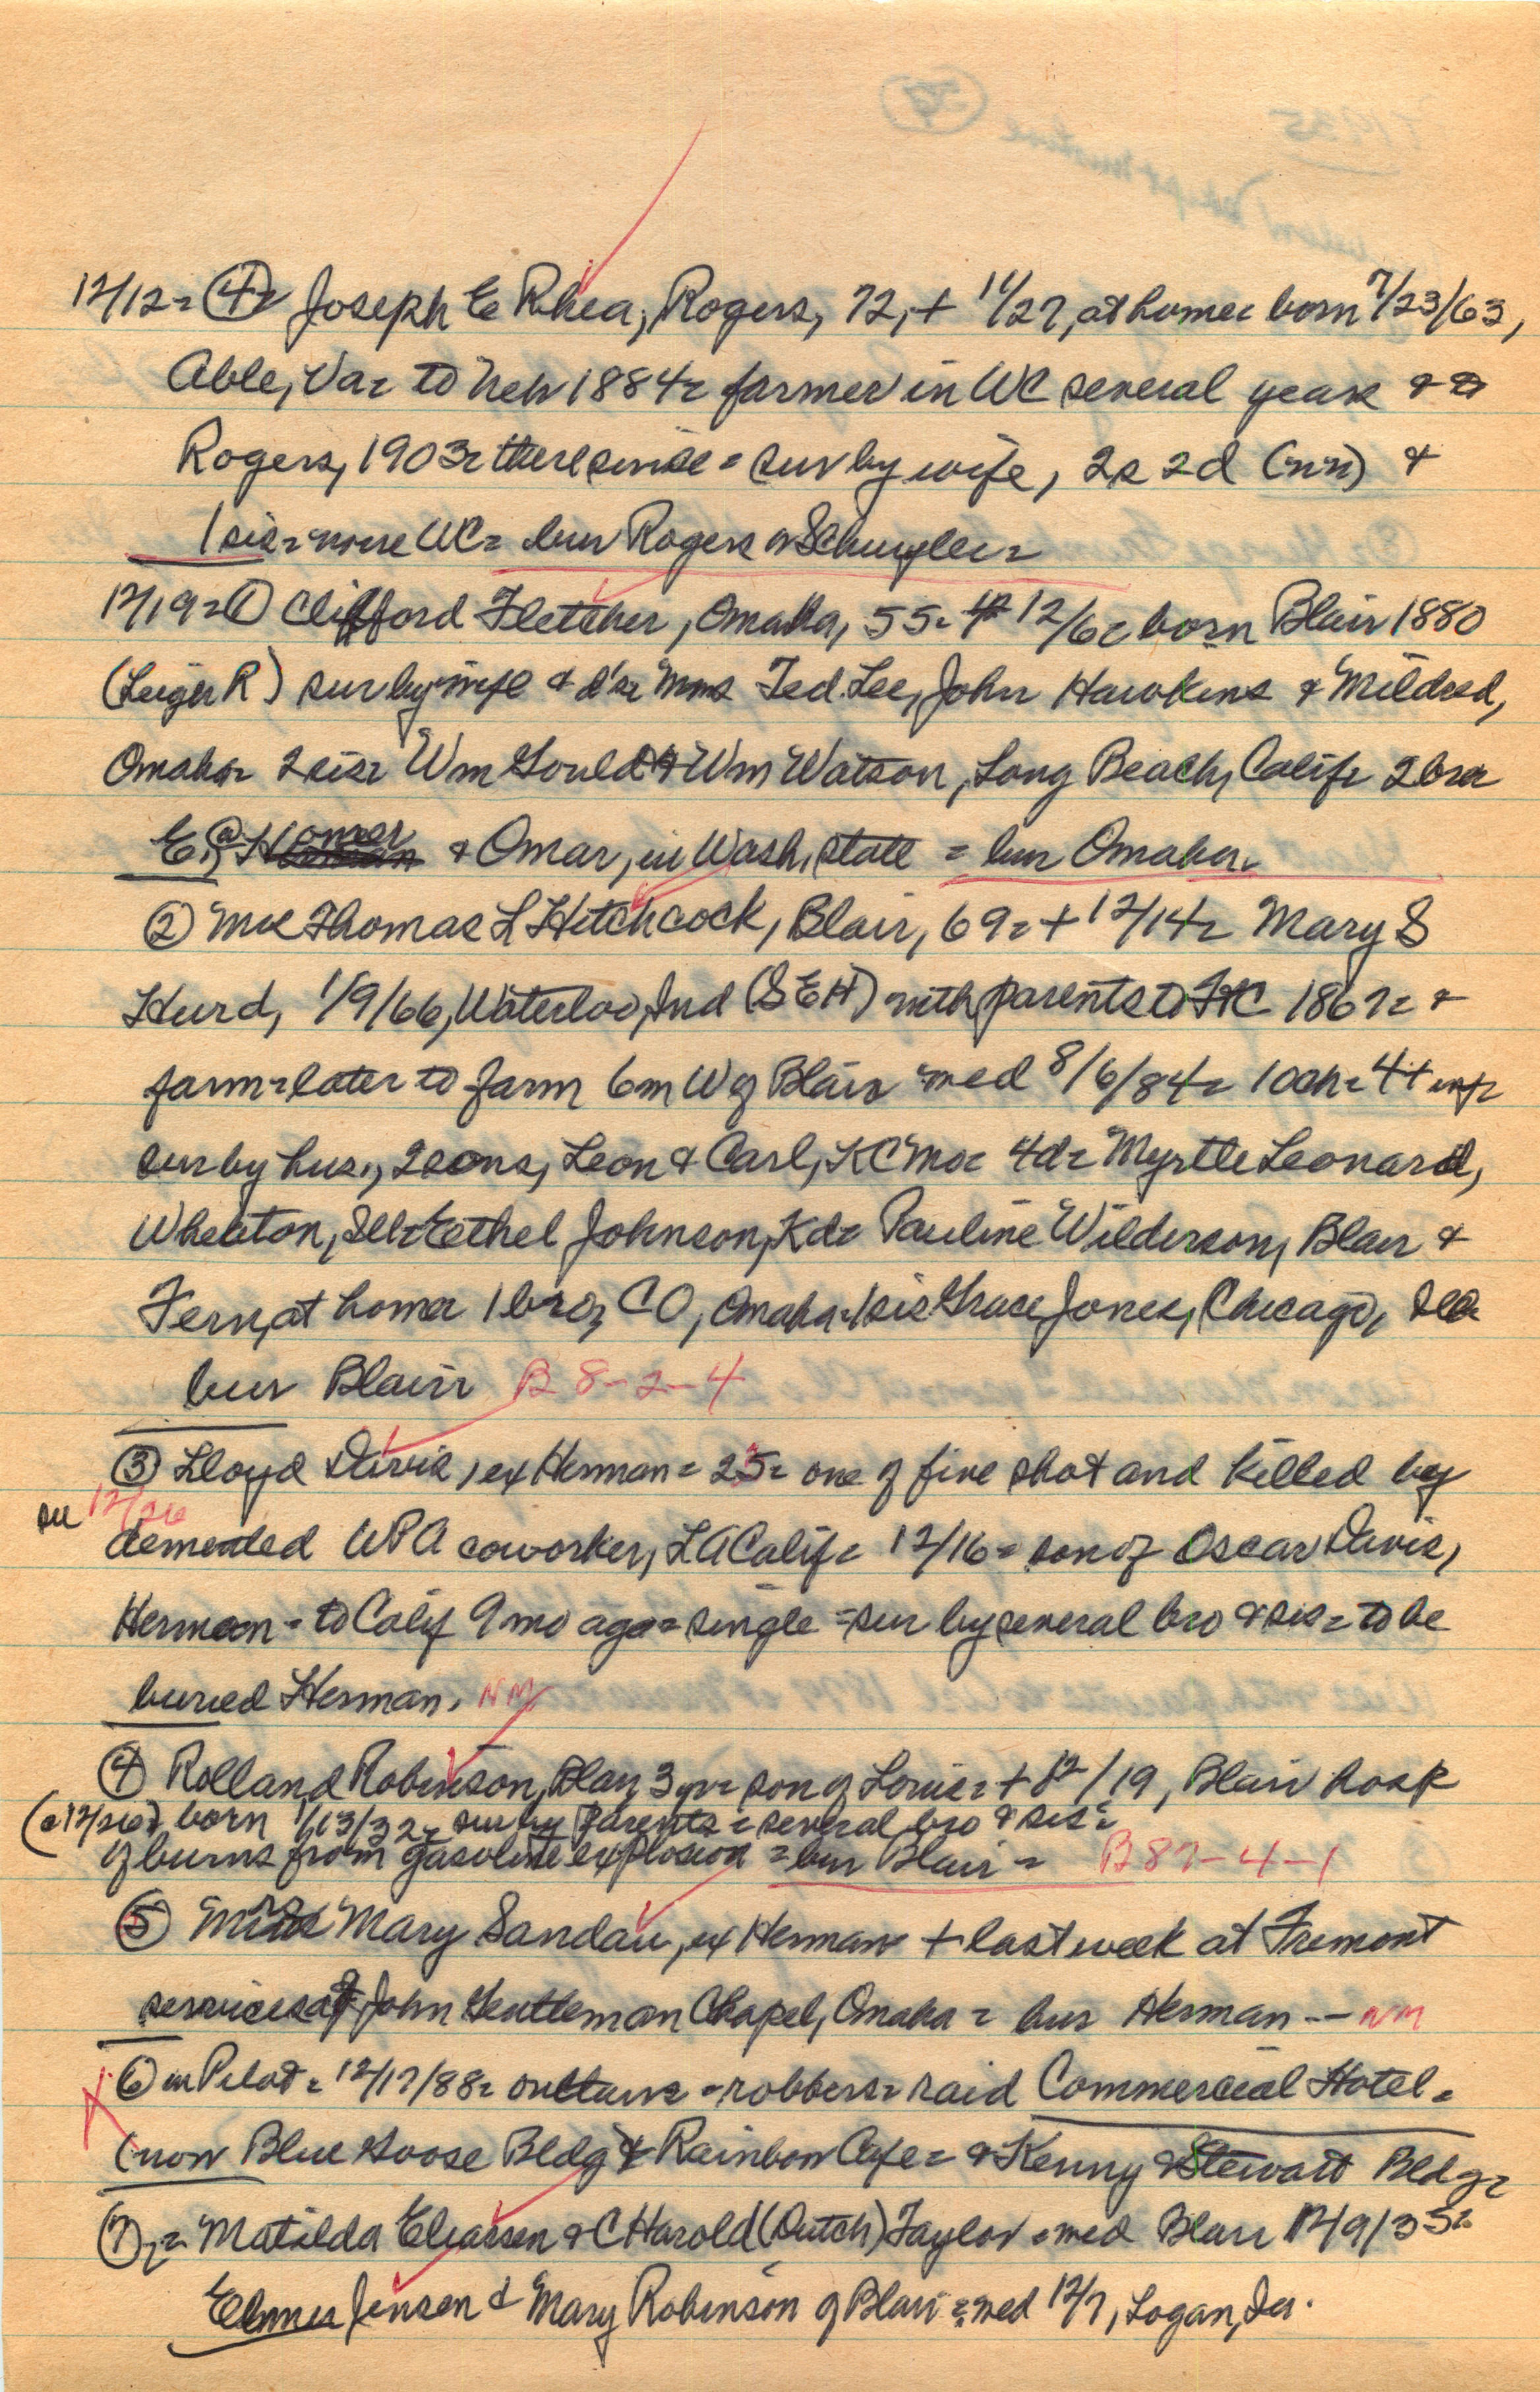 12/12= (4)= Joseph E Rhea, Rogers, 72, + 11/27, at home= born 7/23/63,
Able, Va= to Neb 1884= farmer in WC several years & to
Rogers, 1903= there since = sur by wife, 2s 2d (nn) &
1 sis= none WC= bur Rogers or Schuyler=
12/19= (1) Clifford Fletcher, Omaha, 55= + 12/6= born Blair 1880
(Leiger R) sur by wife & d's= Mms Ted Lee, John Hawkins & Mildred,
Omaha= 2 sis= Wm Gould & Wm Watson, Long Beach, Calif= 2 bro=
E.@ Homer & Omar, in Wash. state = bur Omaha=
(2) Mrs Thomas L Hitchcock, Blair, 69= + 12/14= Mary S
Hurd, 1/9/66, Waterloo, Ind (SEH) with parents to FtC 1867= &
farm= later to farm 6m W of Blair med 8/6/84= 10ch= 4+ inf=
sur by hus., 2 sons, Leon & Carl, KCMo= 4d= Myrtle Leonard,
Wheaton, Ill= Eethel Johnson, Kd= Pauline Wilderson, Blair &
Fern, at home= 1 bro, CO, Omaha= 1 sis Grace Jones, Chicago, Ill=
bur Blair= B 8-2-4
(3) Lloyd Davis, ex Herman = 25= one of five shot and killed by
see 12/26
demented WPA coworker, LA Calif= 12/16= son of Oscar Davis,
Herman = to Calif 9 mo ago= single = sur by several bro & sis= to be
buried Herman. NM
(4) Rolland Robinson, Blair, 3 yr= son of Louis= + 12/19, Blair hosp
(c12/26) born 1/13/32= sur by parents = several bro & sis=
of burns from gasoline explosion = bur Blair = B 87-4-1
(5) Mrs Mary Sandau, ex Herman + last week at Fremont
services at John Gentleman Chapel, Omaha = bur Herman -- NM
X (6) in Pilot = 12/17/88= outlaws = robbers= raid Commercial Hotel=
(now Blue Goose Bldg & Rainbow Cafe = & Kenny & Stewart Bldg=
(7)= Matilda Eliassen & C Harold (Dutch) Taylor = med Blair 12/9/35=
Elmer Jensen & Mary Robinson of Blair = med 12/7, Logan, Ia.